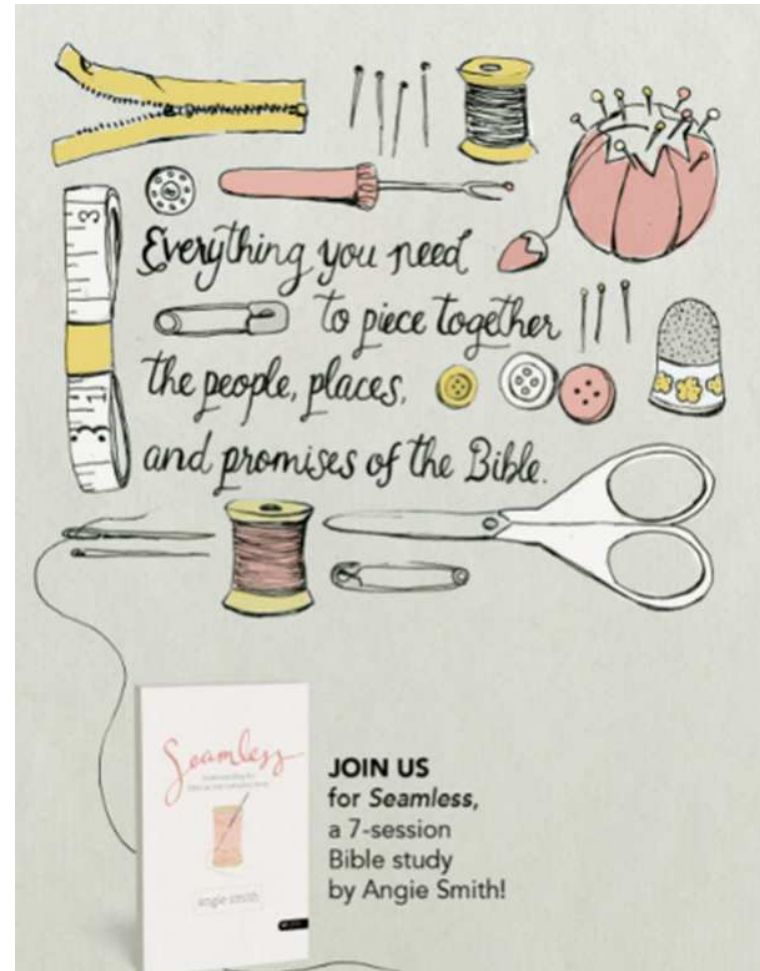 Everything you need
to piece together
the people, places,
and promises of the Bible.
Seamless
angie smith
JOIN US
for Seamless,
a 7-session
Bible study
by Angie Smith!
3